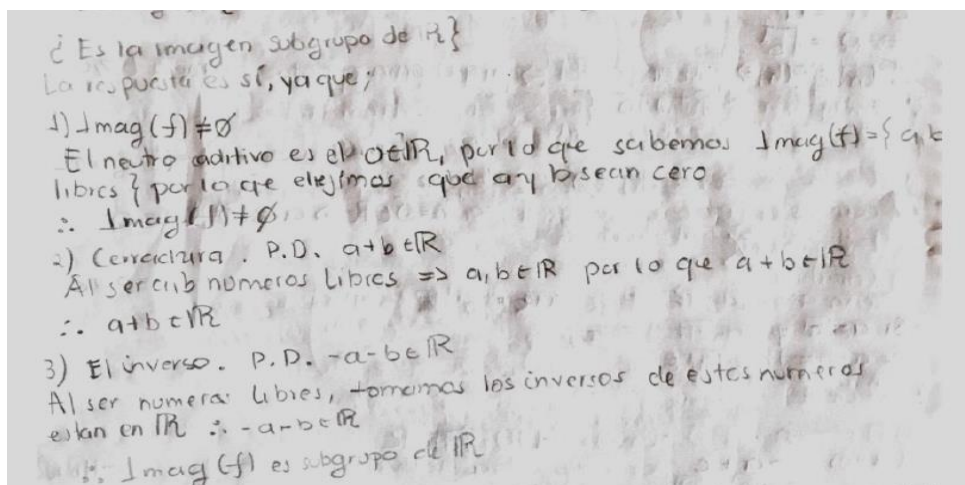 ¿ Es la imagen subgrupo de R}
La respuesta es sí, ya que;
1) Imag (f) ≠ ∅
El neutro aditivo es el 0 ∈ ℝ, por lo que sabemos Imag(f) = { a, b
libres } por lo que elejimos que a y b sean cero
∴ Imag(f) ≠ ∅
2) Cerradura. P.D. a+b ∈ ℝ
Al ser a,b numeros libres => a, b ∈ ℝ por lo que a + b ∈ ℝ
∴ a+b ∈ ℝ
3) El inverso. P.D. -a-b ∈ ℝ
Al ser numeros libres, tomamos los inversos de estos numeros
estan en ℝ ∴ -a-b ∈ ℝ
∴ Imag (f) es subgrupo de ℝ